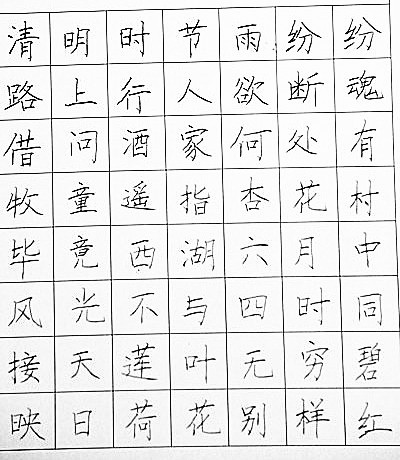 清明时节雨纷纷
路上行人欲断魂
借问酒家何处有
牧童遥指杏花村
毕竟西湖六月中
风光不与四时同
接天莲叶无穷碧
映日荷花别样红